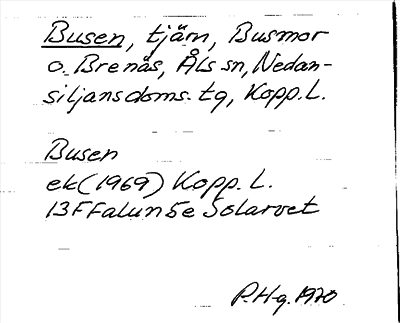 Busen, tjärn, Busmor
o. Brenäs, Åls sn, Nedan-
siljans doms. tg, Kopp. L.
Busen
ek (1969) Kopp. L.
13F Falun 5e Solarvet
P. Hg. 1970